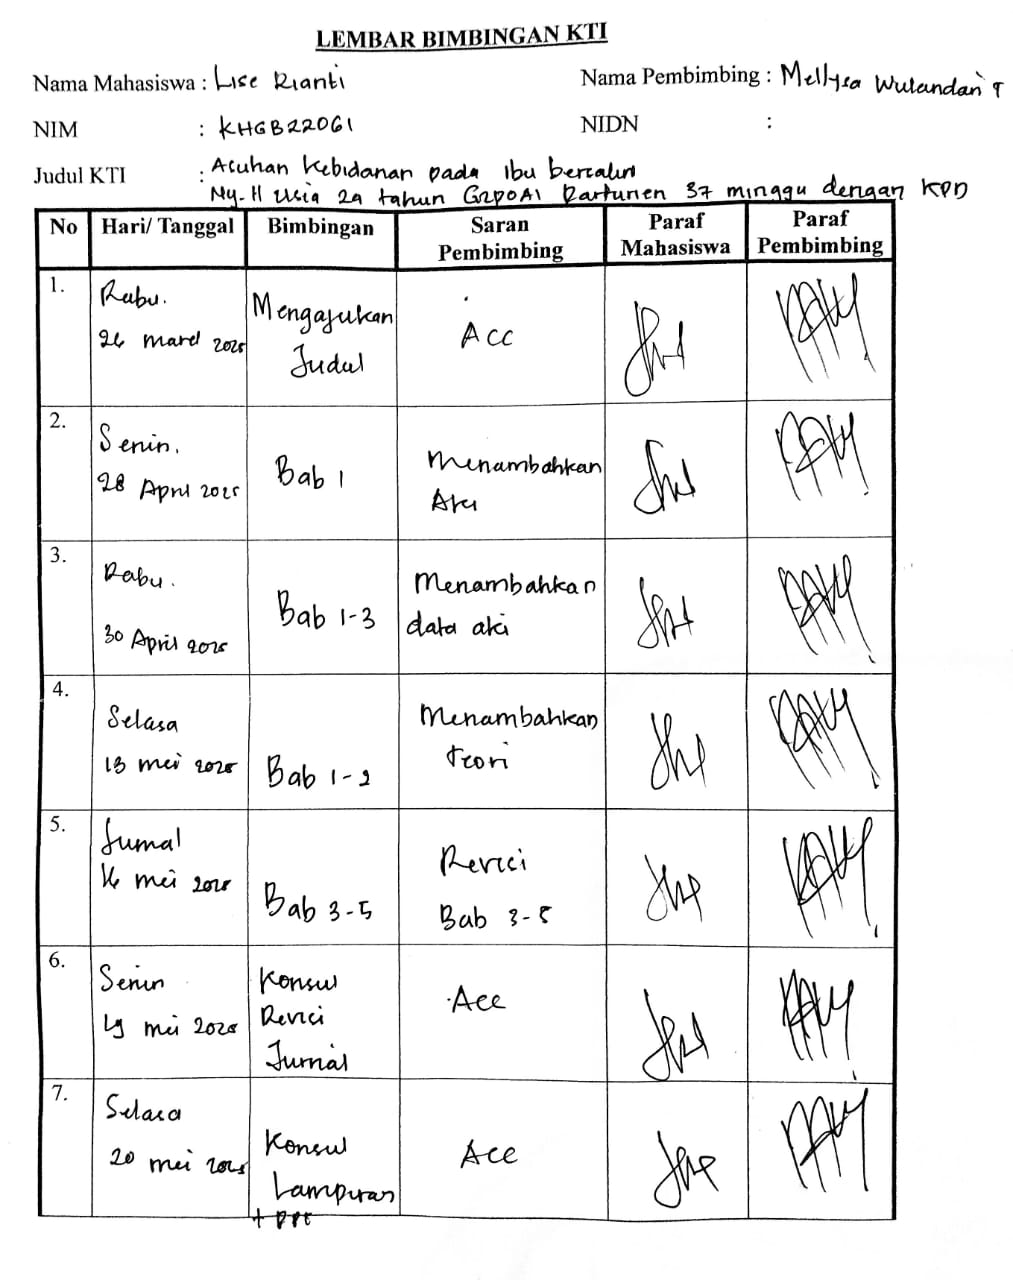 LEMBAR BIMBINGAN KTI
Nama Mahasiswa : Lise Rianti
Nama Pembimbing : Mellysa Wulandari T
NIM : KHGB22061
NIDN :
Judul KTI : Asuhan Kebidanan pada Ibu bersalin
Ny. H Usia 29 tahun G2P0A1 Partunen 37 minggu dengan KPD
No Hari/ Tanggal Bimbingan Saran Pembimbing Paraf Mahasiswa Paraf Pembimbing
1. Rabu. 26 maret 2025 Mengajukan Judul Acc
2. Senin. 28 April 2025 Bab 1 Menambahkan Aki
3. Rabu. 30 April 2025 Bab 1-3 Menambahkan data aki
4. Selasa 13 mei 2025 Bab 1-2 Menambahkan teori
5. Jumat 16 mei 2025 Bab 3-5 Revisi Bab 3-5
6. Senin 19 mei 2025 Konsul Revisi Jurnal Acc
7. Selasa 20 mei 2025 Konsul Lampiran + PPT Acc